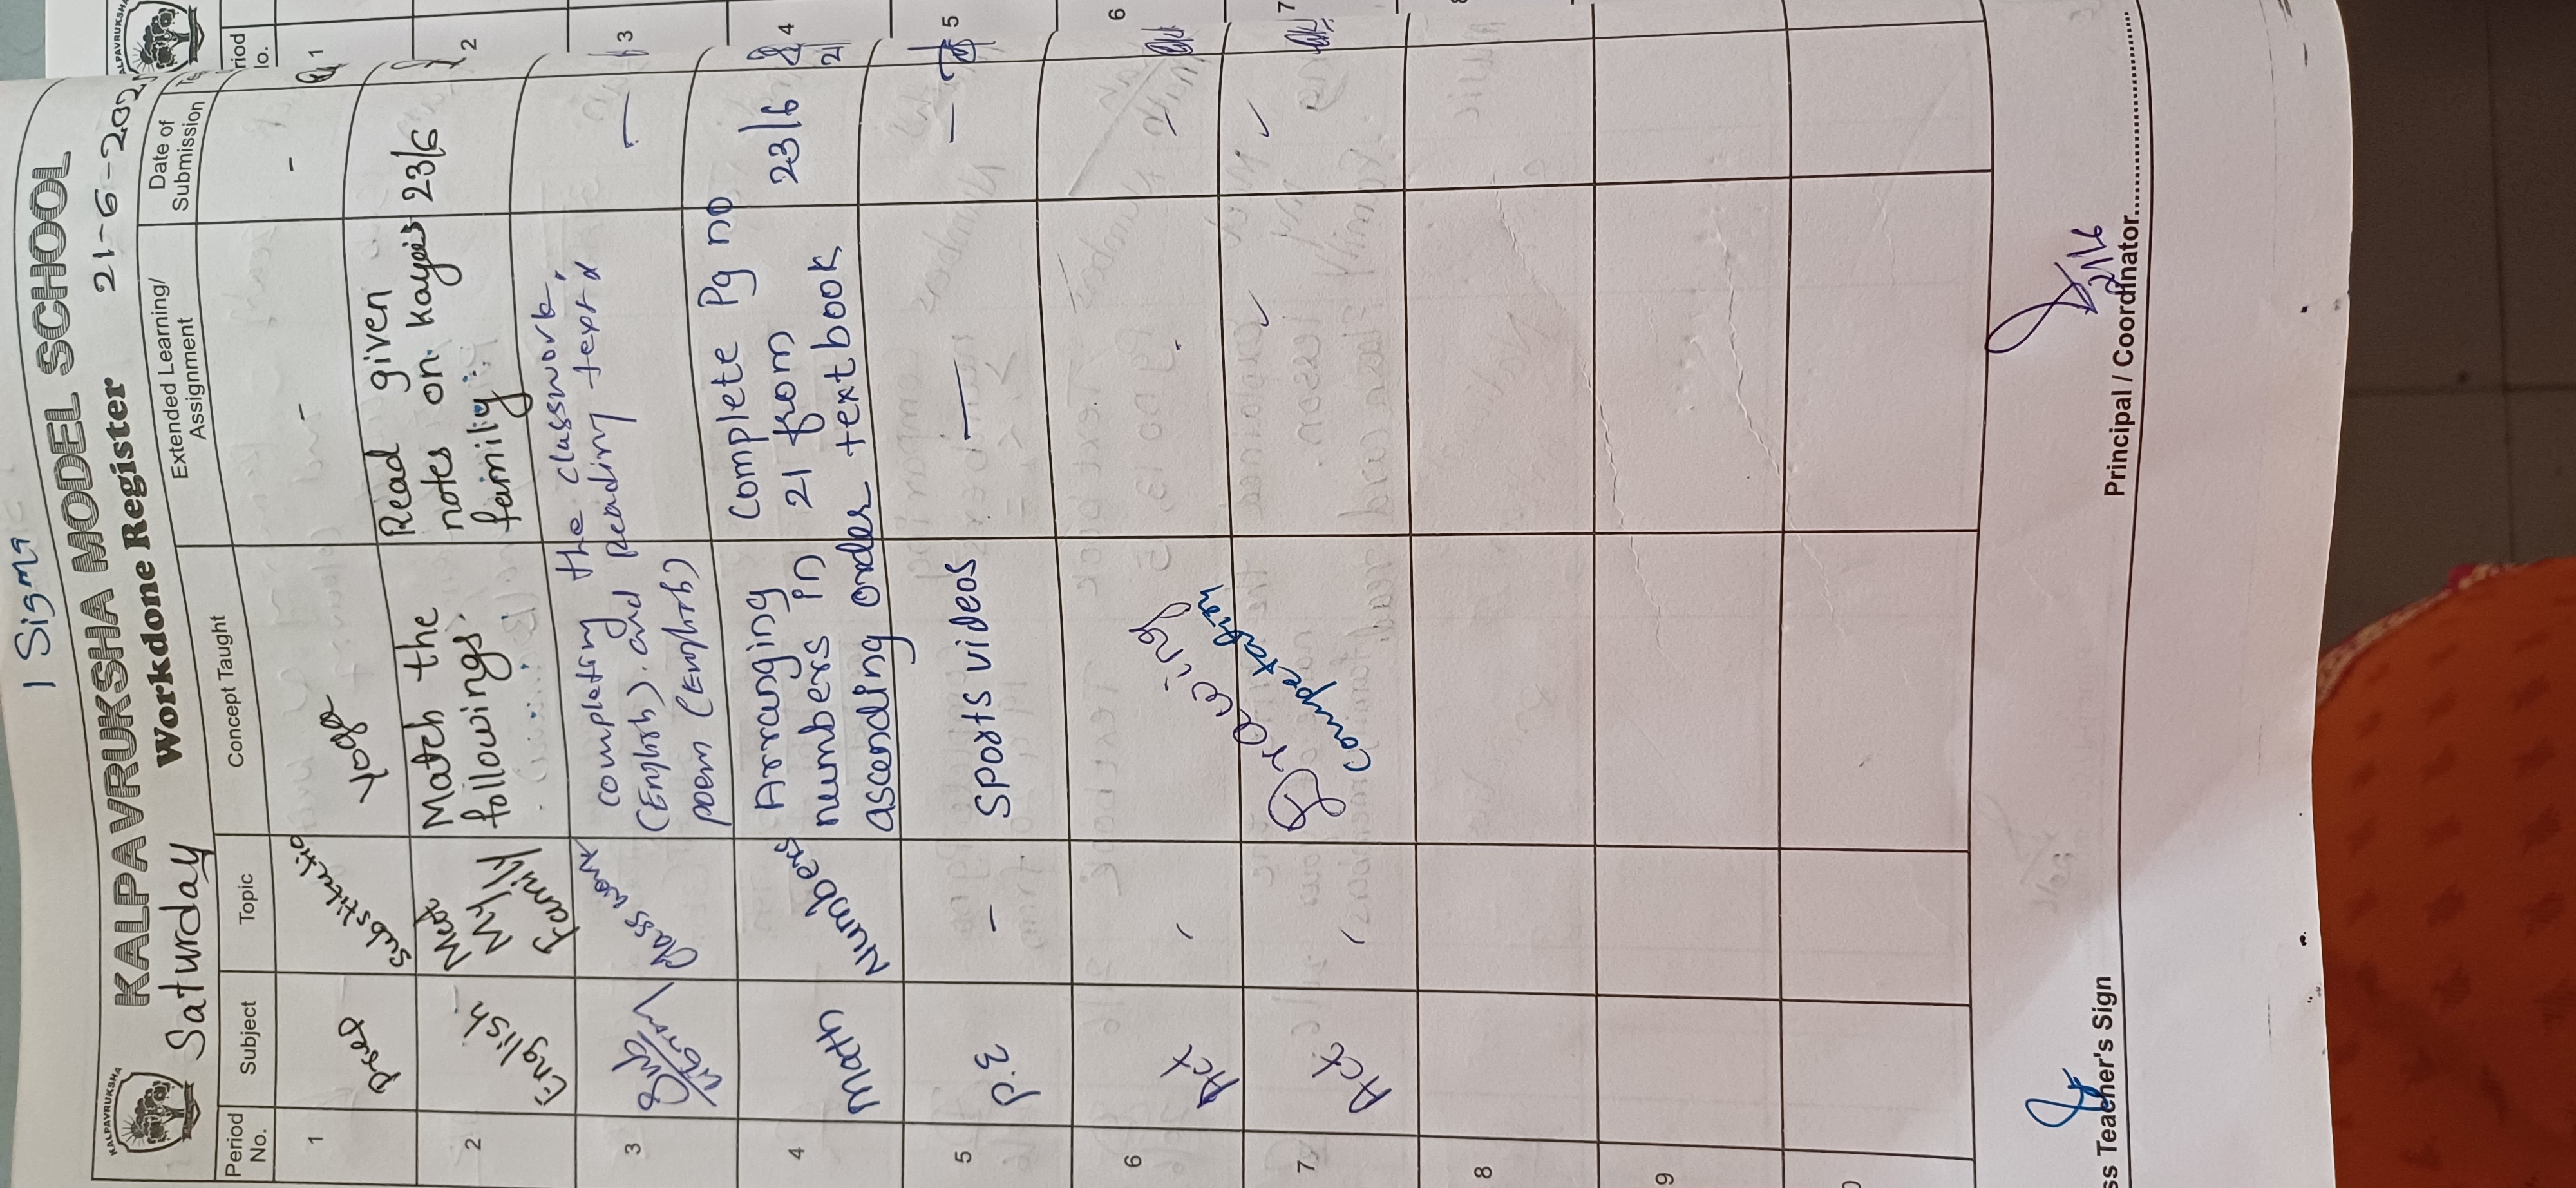 1 Sigma
KALPAVRUKSHA
KALPAVRUKSHA MODEL SCHOOL
Saturday
Workdone Register
21-6-202
Period No.
Subject
Topic
Concept Taught
Extended Learning/ Assignment
Date of Submission
1
Prep
Substitution
Yoga
-
-
2
English
Meet My Family
Match the followings.
Read given notes on kaye's family
23/6
3
Sub/
Class work
completing the classwork,
(English). and reading text
poem (English)
—
4
Math
Numbers
Arranging numbers in ascending order
Complete Pg no 21 from textbook
23/6
5
P.E
-
Sports videos
—
—
6
Act
Drawing competation
7
Act
8
9
ss Teacher's Sign
Principal / Coordinator
21/6
ALPAVRUKSHA
riod
lo.
1
2
3
4
5
6
7